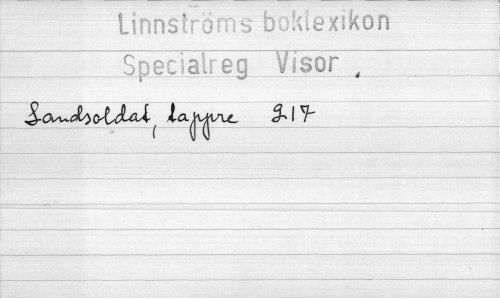 Linnströms boklexikon
Specialreg Visor .
Landsoldat, tappre 217